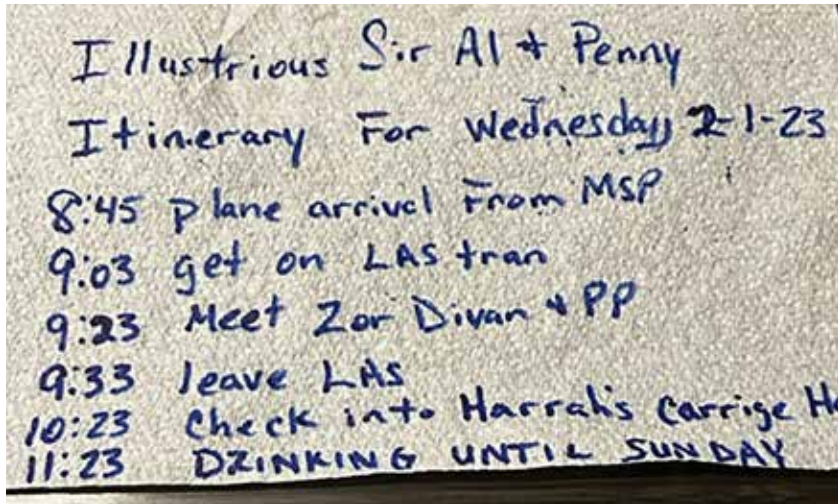 Illustrious Sir Al & Penny
Itinerary For Wednesday 2-1-23
8:45 plane arrival From MSP
9:03 get on LAS tran
9:23 Meet Zor Divan & PP
9:33 leave LAS
10:23 Check into Harrah's Carrige
11:23 DZINKING UNTIL SUNDAY